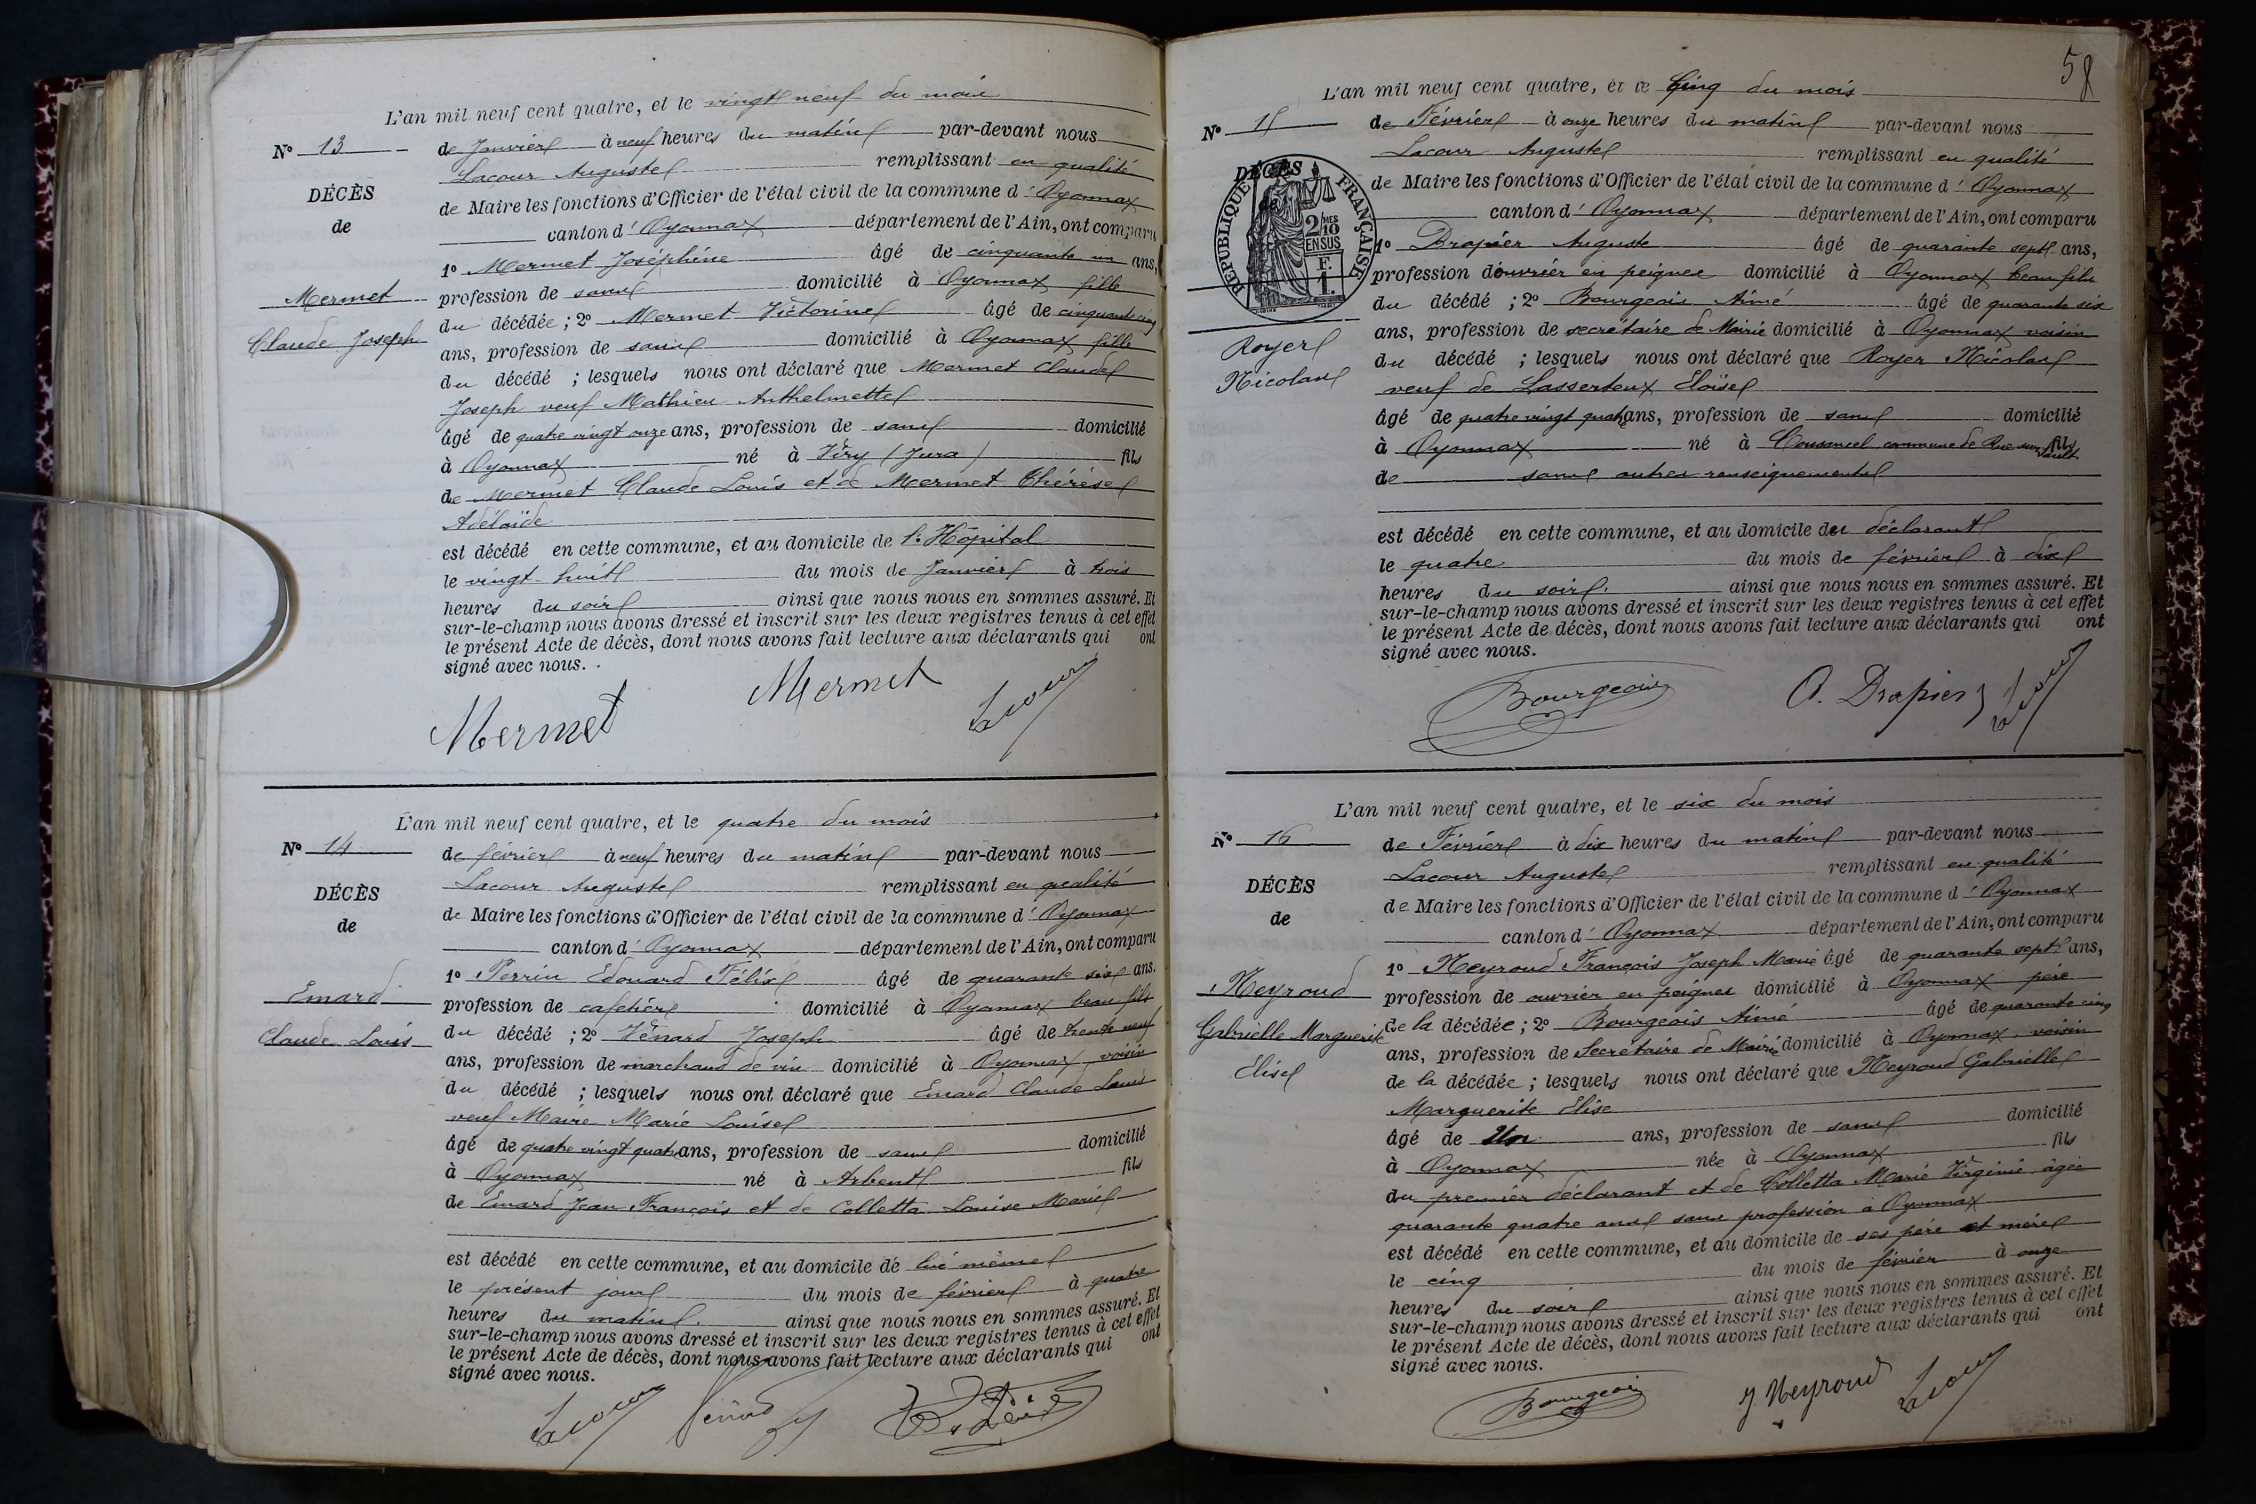 L'an mil neuf cent quatre, et le vingt neuf du mois
N° 13
de Janvier à neuf heures du matin par-devant nous
Lacour Auguste remplissant en qualité
DÉCÈS
de Maire les fonctions d'Officier de l'état civil de la commune d'Oyonnax
de
canton d'Oyonnax département de l'Ain, ont comparu
1° Mermet Joséphine âgé de cinquante un ans,
Mermet
profession de sans domicilié à Oyonnax fille
du décédée ; 2° Mermet Victorine âgé de cinquante cinq
Claude Joseph
ans, profession de sans domicilié à Oyonnax fille
du décédé ; lesquels nous ont déclaré que Mermet Claude
Joseph veuf Mathieu Anthelmette
âgé de quatre vingt onze ans, profession de sans domicilié
à Oyonnax né à Viry (Jura) fils
de Mermet Claude Louis et de Mermet Thérèse
Adélaïde
est décédé en cette commune, et au domicile de l'Hôpital
le vingt-huit du mois de Janvier à trois
heures du soir ainsi que nous nous en sommes assuré. Et
sur-le-champ nous avons dressé et inscrit sur les deux registres tenus à cet effet
le présent Acte de décès, dont nous avons fait lecture aux déclarants qui ont
signé avec nous.
Mermet Mermet Lacour
L'an mil neuf cent quatre, et le quatre du mois
N° 14
de février à neuf heures du matin par-devant nous
Lacour Auguste remplissant en qualité
DÉCÈS
de Maire les fonctions d'Officier de l'état civil de la commune d'Oyonnax
de
canton d'Oyonnax département de l'Ain, ont comparu
1° Perrin Edouard Félix âgé de quarante six ans.
Emard
profession de cafetier domicilié à Oyonnax beau fils
Claude Louis
du décédé ; 2° Vénard Joseph âgé de trente neuf
ans, profession de marchand de vin domicilié à Oyonnax voisin
du décédé ; lesquels nous ont déclaré que Emard Claude Louis
veuf Maire Marie Louise
âgé de quatre vingt quatre ans, profession de sans domicilié
à Oyonnax né à Arbent fils
de Emard Jean François et de Colletta Louise Marie
est décédé en cette commune, et au domicile de lui même
le présent jour du mois de février à quatre
heures du matin. ainsi que nous nous en sommes assuré. Et
sur-le-champ nous avons dressé et inscrit sur les deux registres tenus à cet effet
le présent Acte de décès, dont nous avons fait lecture aux déclarants qui ont
signé avec nous.
Lacour Vénard
58
L'an mil neuf cent quatre, et le Cinq du mois
N° 15
de Février à onze heures du matin par-devant nous
Lacour Auguste remplissant en qualité
DÉCÈS
de
RÉPUBLIQUE FRANÇAISE
2/10 EN SUS
F. 1.
de Maire les fonctions d'Officier de l'état civil de la commune d'Oyonnax
canton d'Oyonnax département de l'Ain, ont comparu
1° Drapier Auguste âgé de quarante sept ans,
profession d'ouvrier en peignes domicilié à Oyonnax beau fils
du décédé ; 2° Bourgeois Aimé âgé de quarante six
ans, profession de secrétaire de Mairie domicilié à Oyonnax voisin
Royer
Nicolas
du décédé ; lesquels nous ont déclaré que Royer Nicolas
veuf de Lasserteux Eloïse
âgé de quatre vingt quatre ans, profession de sans domicilié
à Oyonnax né à Cousancel commune de Rue sur Saulx fils
de sans autres renseignements
est décédé en cette commune, et au domicile du déclarant
le quatre du mois de février à dix
heures du soir. ainsi que nous nous en sommes assuré. Et
sur-le-champ nous avons dressé et inscrit sur les deux registres tenus à cet effet
le présent Acte de décès, dont nous avons fait lecture aux déclarants qui ont
signé avec nous.
Bourgeois A. Drapier Lacour
L'an mil neuf cent quatre, et le six du mois
N° 16
de Février à dix heures du matin par-devant nous
Lacour Auguste remplissant en qualité
DÉCÈS
de Maire les fonctions d'Officier de l'état civil de la commune d'Oyonnax
de
canton d'Oyonnax département de l'Ain, ont comparu
1° Neyroud François Joseph Marie âgé de quarante sept ans,
Neyroud
profession de ouvrier en peignes domicilié à Oyonnax père
Gabrielle Marguerite
de la décédée ; 2° Bourgeois Aimé âgé de quarante cinq
Elise
ans, profession de Secrétaire de Mairie domicilié à Oyonnax, voisin
de la décédée ; lesquels nous ont déclaré que Neyroud Gabrielle
Marguerite Elise
âgé de Un ans, profession de sans domicilié
à Oyonnax née à Oyonnax fils
du premier déclarant et de Colletta Marie Virginie âgée
quarante quatre ans sans profession à Oyonnax
est décédé en cette commune, et au domicile de ses père et mère
le cinq du mois de février à onze
heures du soir ainsi que nous nous en sommes assuré. Et
sur-le-champ nous avons dressé et inscrit sur les deux registres tenus à cet effet
le présent Acte de décès, dont nous avons fait lecture aux déclarants qui ont
signé avec nous.
Bourgeois J. Neyroud Lacour